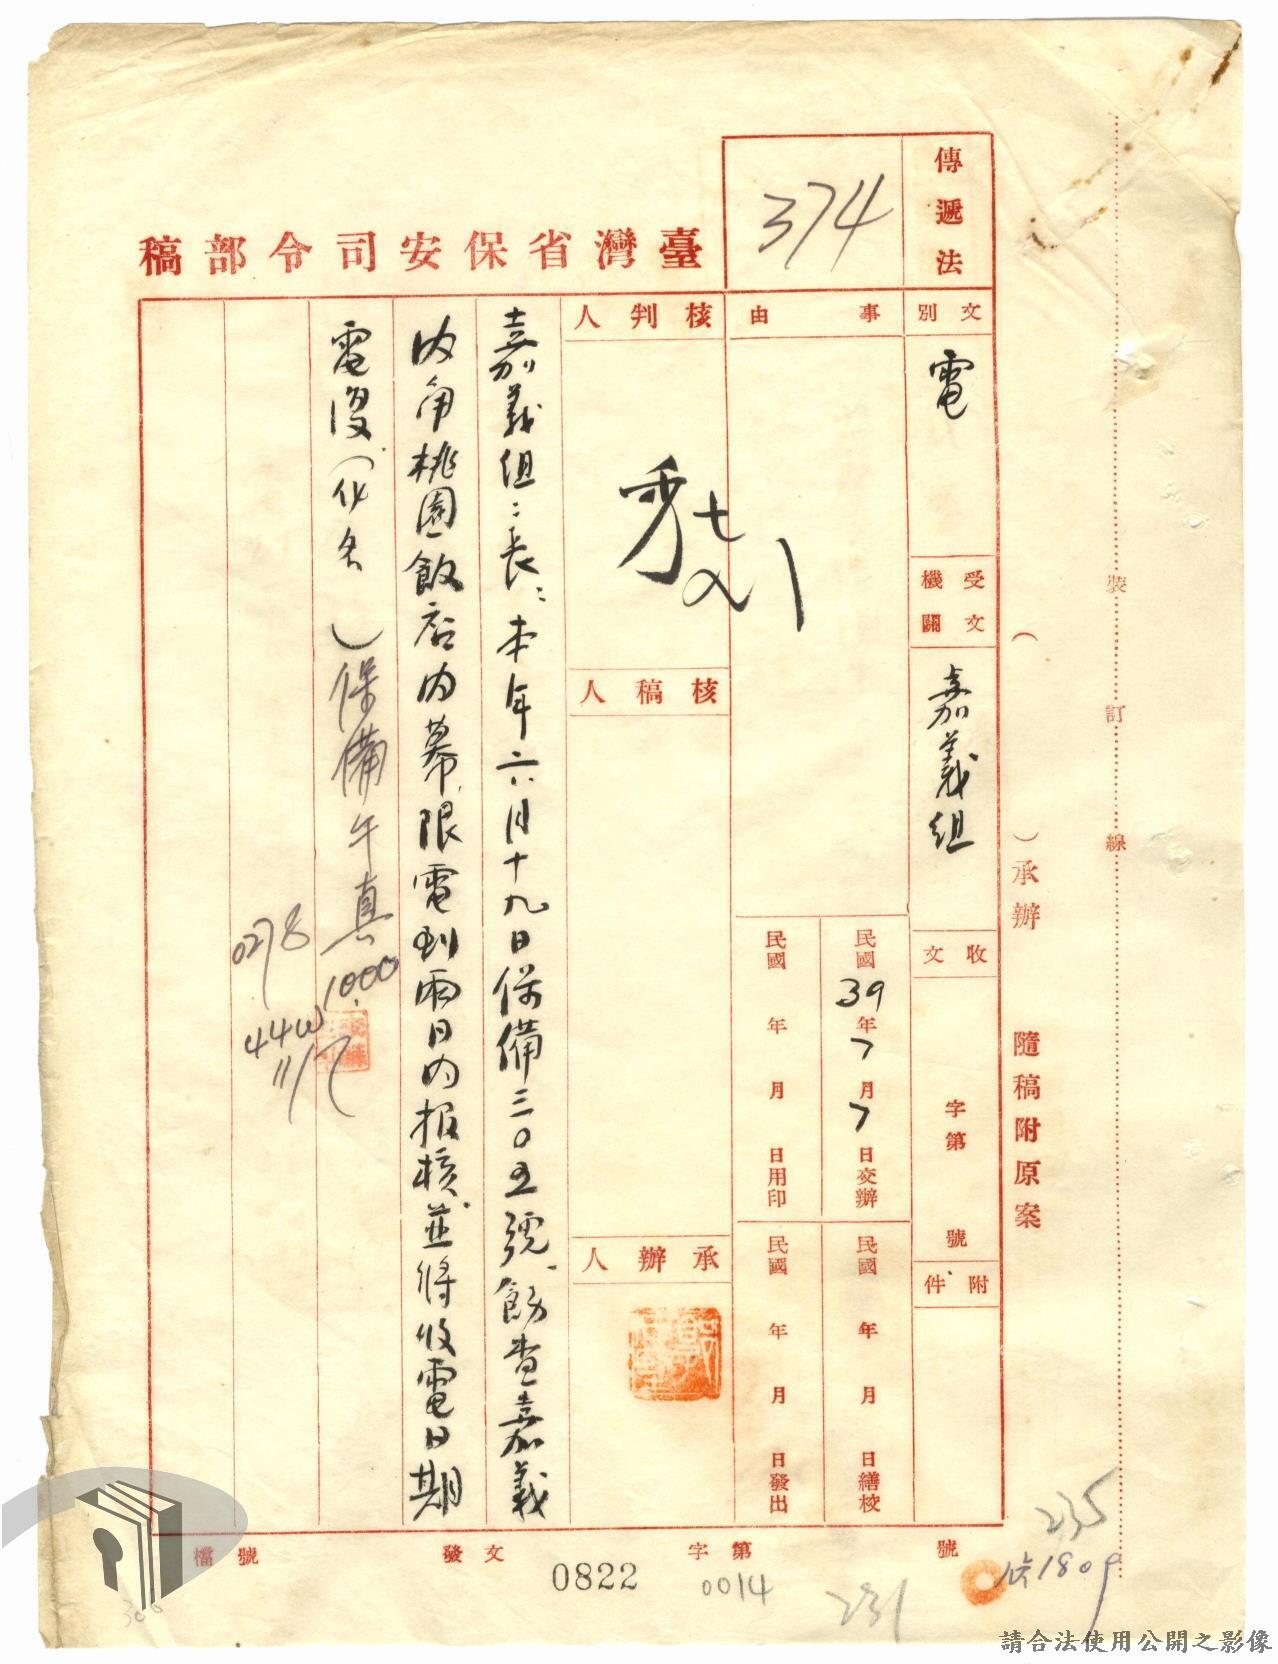 裝訂線
（　　）承辦　隨稿附原案
傳遞法
374
臺灣省保安司令部稿
文別
電
受文機關
嘉義組
收文
字第　號
附件
事由
民國39年7月7日交辦
民國　年　月　日繕校
民國　年　月　日用印
民國　年　月　日發出
核判人
核稿人
承辦人
嘉義組：長：本年六月十九日保備三〇五號飭查嘉義
內角桃園飯店內幕限電到兩日內報核並將收電日期
電復（化名　）保備午真
1000
0278
44W
11/7
檔號
發文
字第
號
0822
0014
231
235
1809
300
請合法使用公開之影像